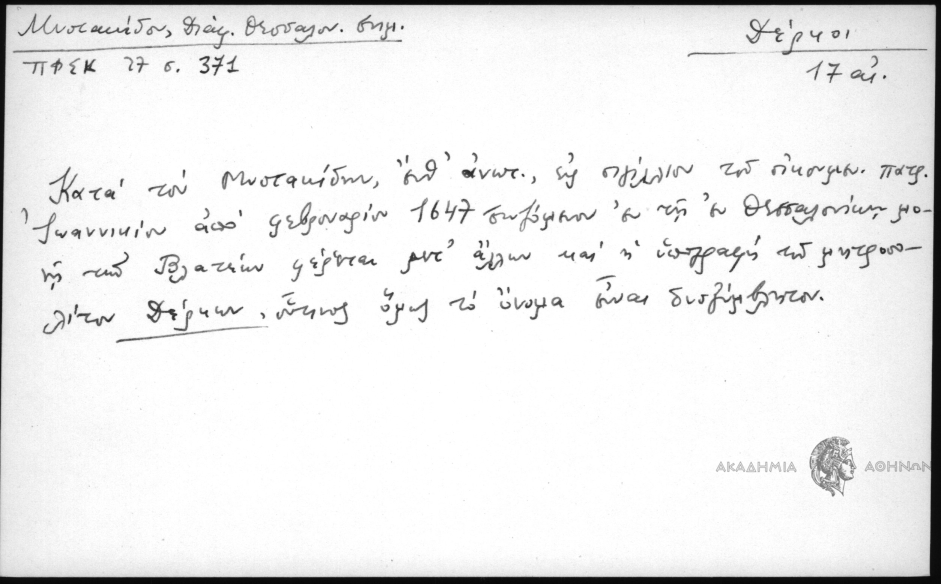 Μυστακίδου, Διάφ. Θεσσαλον. σημ.
Δέρκοι
ΠΦΣΚ 27 σ. 371
17 αἰ.
Κατὰ τὸν Μυστακίδην, ἔνθ' ἀνωτ., εἰς σιγίλλιον τοῦ οἰκουμεν. πατρ.
Ἰωαννικίου ἀπὸ φεβρουαρίου 1647 σωζόμενον ἐν τῇ ἐν Θεσσαλονίκῃ μο-
νῇ τῶν Βλατέων φέρεται μετ' ἄλλων καὶ ἡ ὑπογραφὴ τοῦ μητροπο-
λίτου Δέρκων, οὗτινος ὅμως τὸ ὄνομα εἶναι δυσξύμβλητον.
ΑΚΑΔΗΜΙΑ ΑΘΗΝΩΝ